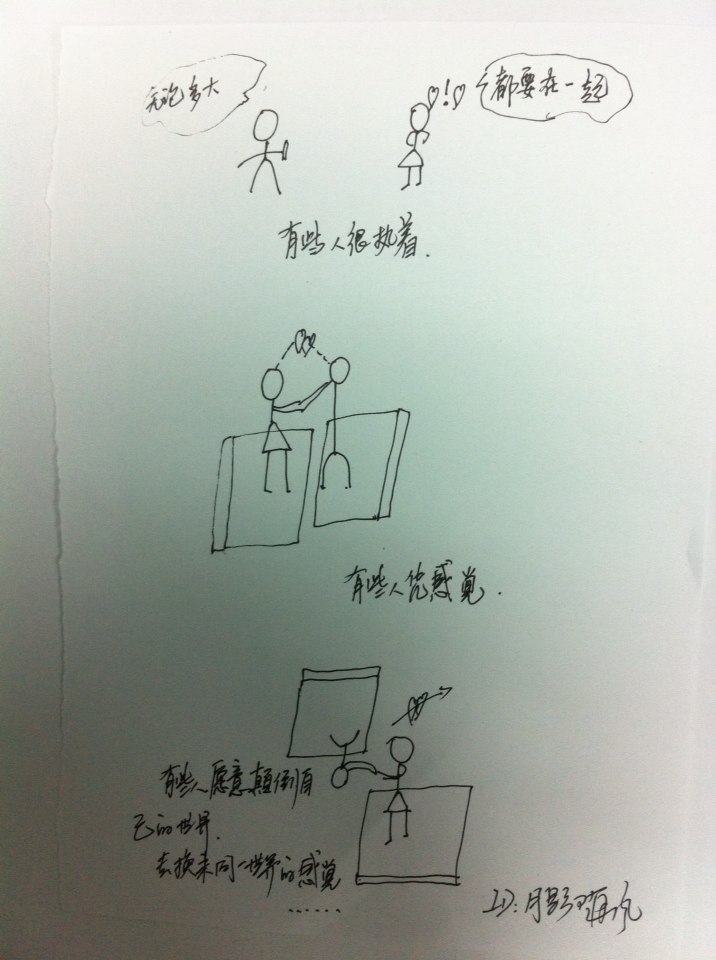 无论多大
!
都要在一起
有些人很执着.
有些人凭感觉.
有些人愿意颠倒自
己的世界.
去换来同一世界的感觉
......
ID:月影